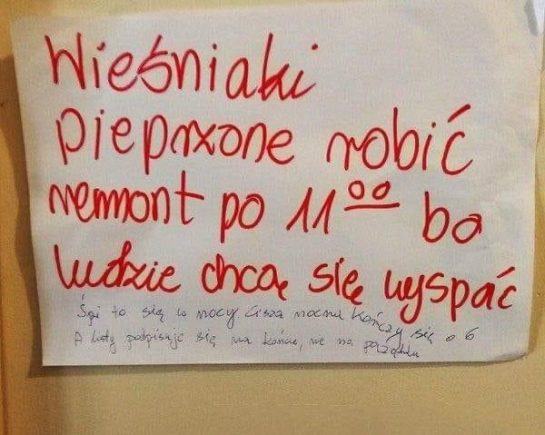 Wieśniaki
pieprzone robić
remont po 11⁰⁰ bo
ludzie chcą się wyspać
Śpi to się w nocy cisza nocna kończy się o 6
A listy podpisuje się na końcu, nie na początku